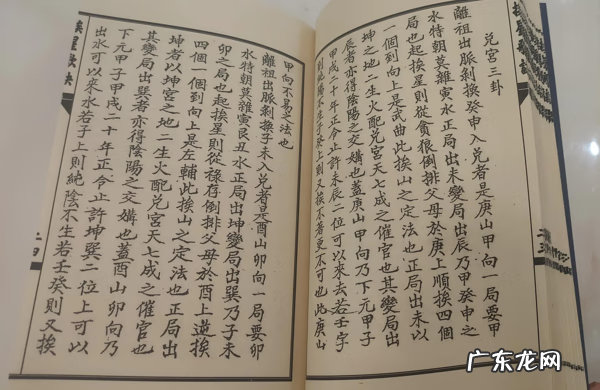 兌宮三卦
離祖出脈剝換癸申入兌者是庚山甲向一局要甲
水特朝莫雜寅水正局出未變局出辰乃甲癸申之
局也起挨星則從貪狼倒排父母於庚上順挨四個
一個到向上是武曲此挨山之定法也正局出未以
坤之地二生火配兌宮天七成之催官也其變局出
辰者亦得陰陽之交媾也蓋庚山甲向乃下元甲子
甲戌二十年正令止許未辰二位可以來去若壬字
則純陽不生子癸上則又挨不著更不可也此庚山
甲向不易之法也
離祖出脈剝換子未入兌者是酉山卯向一局要卯
水特朝莫雜寅艮丑水正局出坤變局出巽乃子未
卯之局也起挨星則從祿存倒排父母於酉上逆挨
四個一個到向上是左輔此挨山之定法也正局出
坤者以坤宮之地二生火配兌宮天七成之催官也
其變局出巽者亦得陰陽之交媾也蓋酉山卯向乃
下元甲子甲戌二十年正令止許坤巽二位上可以
出水可以來水若子上則純陰不生若壬癸則又挨
二十四
广东龙网